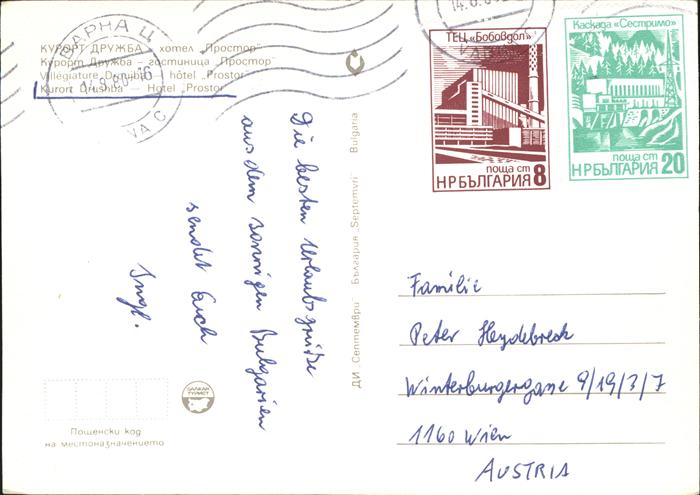 КУРОРТ ДРУЖБА – хотел „Простор"
Курорт Дружба — гостиница „Простор"
Villégiature Drujba — hôtel „Prostor"
Kurort Drushba — Hotel „Prostor"
ВАРНА Ц
14.8.80-16
VA C
14.8.80
ТЕЦ „Бобовдол"
поща ст
НР БЪЛГАРИЯ 8
Каскада „Сестримо"
поща ст
НР БЪЛГАРИЯ 20
Die besten Urlaubsgrüße
aus dem sonnigen Bulgarien
sendet Euch
Inge.
ДИ „Септември" България „Septemvri" Bulgaria
Familie
Peter Heydebreck
Winterburgergasse 9/19/3/7
1160 Wien
AUSTRIA
БАЛКАН
ТУРИСТ
Пощенски код
на местоназначението